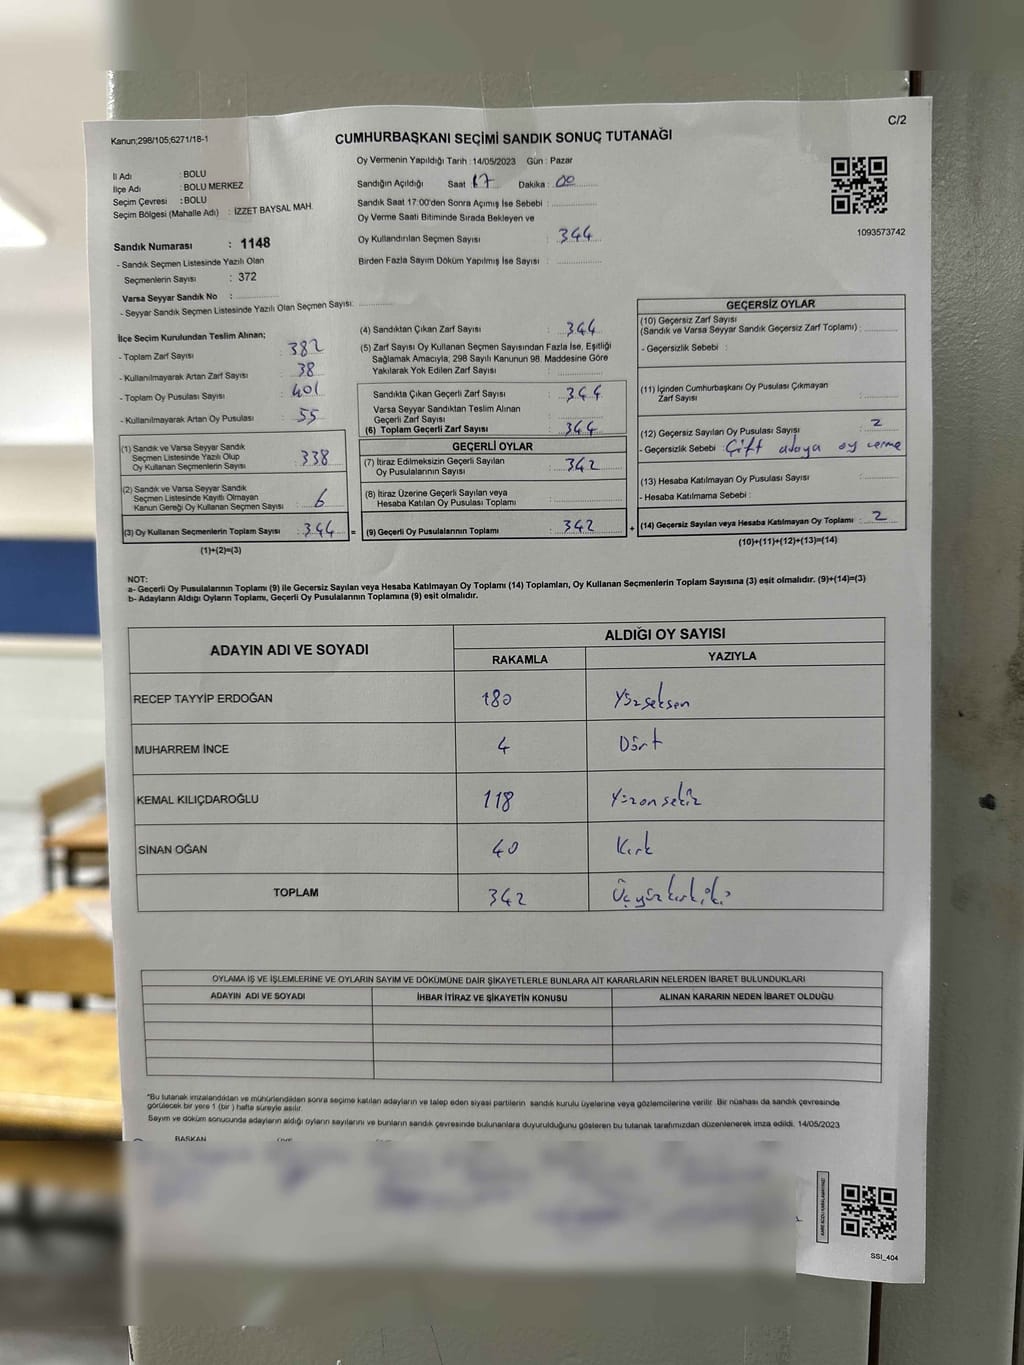 C/2
Kanun;298/105;6271/18-1
CUMHURBAŞKANI SEÇİMİ SANDIK SONUÇ TUTANAĞI
İl Adı : BOLU
İlçe Adı : BOLU MERKEZ
Seçim Çevresi : BOLU
Seçim Bölgesi (Mahalle Adı) : İZZET BAYSAL MAH.
Sandık Numarası : 1148
- Sandık Seçmen Listesinde Yazılı Olan
Seçmenlerin Sayısı : 372
Varsa Seyyar Sandık No :
- Seyyar Sandık Seçmen Listesinde Yazılı Olan Seçmen Sayısı:
Oy Vermenin Yapıldığı Tarih : 14/05/2023 Gün : Pazar
Sandığın Açıldığı Saat 17 Dakika : 00
Sandık Saat 17:00'den Sonra Açımış İse Sebebi :
Oy Verme Saati Bitiminde Sırada Bekleyen ve
Oy Kullandırılan Seçmen Sayısı : 344
Birden Fazla Sayım Döküm Yapılmış İse Sayısı :
1093573742
İlçe Seçim Kurulundan Teslim Alınan;
- Toplam Zarf Sayısı : 382
- Kullanılmayarak Artan Zarf Sayısı : 38
- Toplam Oy Pusulası Sayısı : 401
- Kullanılmayarak Artan Oy Pusulası : 55
(1) Sandık ve Varsa Seyyar Sandık
Seçmen Listesinde Yazılı Olup
Oy Kullanan Seçmenlerin Sayısı : 338
(2) Sandık ve Varsa Seyyar Sandık
Seçmen Listesinde Kayıtlı Olmayan
Kanun Gereği Oy Kullanan Seçmen Sayısı : 6
(3) Oy Kullanan Seçmenlerin Toplam Sayısı : 344 =
(1)+(2)=(3)
(4) Sandıktan Çıkan Zarf Sayısı : 344
(5) Zarf Sayısı Oy Kullanan Seçmen Sayısından Fazla İse, Eşitliği
Sağlamak Amacıyla, 298 Sayılı Kanunun 98. Maddesine Göre
Yakılarak Yok Edilen Zarf Sayısı :
Sandıkta Çıkan Geçerli Zarf Sayısı : 344
Varsa Seyyar Sandıktan Teslim Alınan
Geçerli Zarf Sayısı :
(6) Toplam Geçerli Zarf Sayısı : 344
GEÇERLİ OYLAR
(7) İtiraz Edilmeksizin Geçerli Sayılan
Oy Pusulalarının Sayısı : 342
(8) İtiraz Üzerine Geçerli Sayılan veya
Hesaba Katılan Oy Pusulası Toplamı :
(9) Geçerli Oy Pusulalarının Toplamı : 342 +
GEÇERSİZ OYLAR
(10) Geçersiz Zarf Sayısı
(Sandık ve Varsa Seyyar Sandık Geçersiz Zarf Toplamı) :
- Geçersizlik Sebebi :
(11) İçinden Cumhurbaşkanı Oy Pusulası Çıkmayan
Zarf Sayısı :
(12) Geçersiz Sayılan Oy Pusulası Sayısı : 2
- Geçersizlik Sebebi : Çift adaya oy verme
(13) Hesaba Katılmayan Oy Pusulası Sayısı :
- Hesaba Katılmama Sebebi :
(14) Geçersiz Sayılan veya Hesaba Katılmayan Oy Toplamı : 2
(10)+(11)+(12)+(13)=(14)
NOT:
a- Geçerli Oy Pusulalarının Toplamı (9) ile Geçersiz Sayılan veya Hesaba Katılmayan Oy Toplamı (14) Toplamları, Oy Kullanan Seçmenlerin Toplam Sayısına (3) eşit olmalıdır. (9)+(14)=(3)
b- Adayların Aldığı Oyların Toplamı, Geçerli Oy Pusulalarının Toplamına (9) eşit olmalıdır.
ADAYIN ADI VE SOYADI ALDIĞI OY SAYISI
RAKAMLA YAZIYLA
RECEP TAYYİP ERDOĞAN 180 Yüzseksen
MUHARREM İNCE 4 Dört
KEMAL KILIÇDAROĞLU 118 Yüzonsekiz
SİNAN OĞAN 40 Kırk
TOPLAM 342 Üçyüzkırkiki
OYLAMA İŞ VE İŞLEMLERİNE VE OYLARIN SAYIM VE DÖKÜMÜNE DAİR ŞİKAYETLERLE BUNLARA AİT KARARLARIN NELERDEN İBARET BULUNDUKLARI
ADAYIN ADI VE SOYADI İHBAR İTİRAZ VE ŞİKAYETİN KONUSU ALINAN KARARIN NEDEN İBARET OLDUĞU
*Bu tutanak imzalandıktan ve mühürlendikten sonra seçime katılan adayların ve talep eden siyasi partilerin sandık kurulu üyelerine veya gözlemcilerine verilir. Bir nüshası da sandık çevresinde
görülecek bir yere 1 (bir) hafta süreyle asılır.
Sayım ve döküm sonucunda adayların aldığı oyların sayılarını ve bunların sandık çevresinde bulunanlara duyurulduğunu gösteren bu tutanak tarafımızdan düzenlenerek imza edildi. 14/05/2023
BAŞKAN
SSI_404